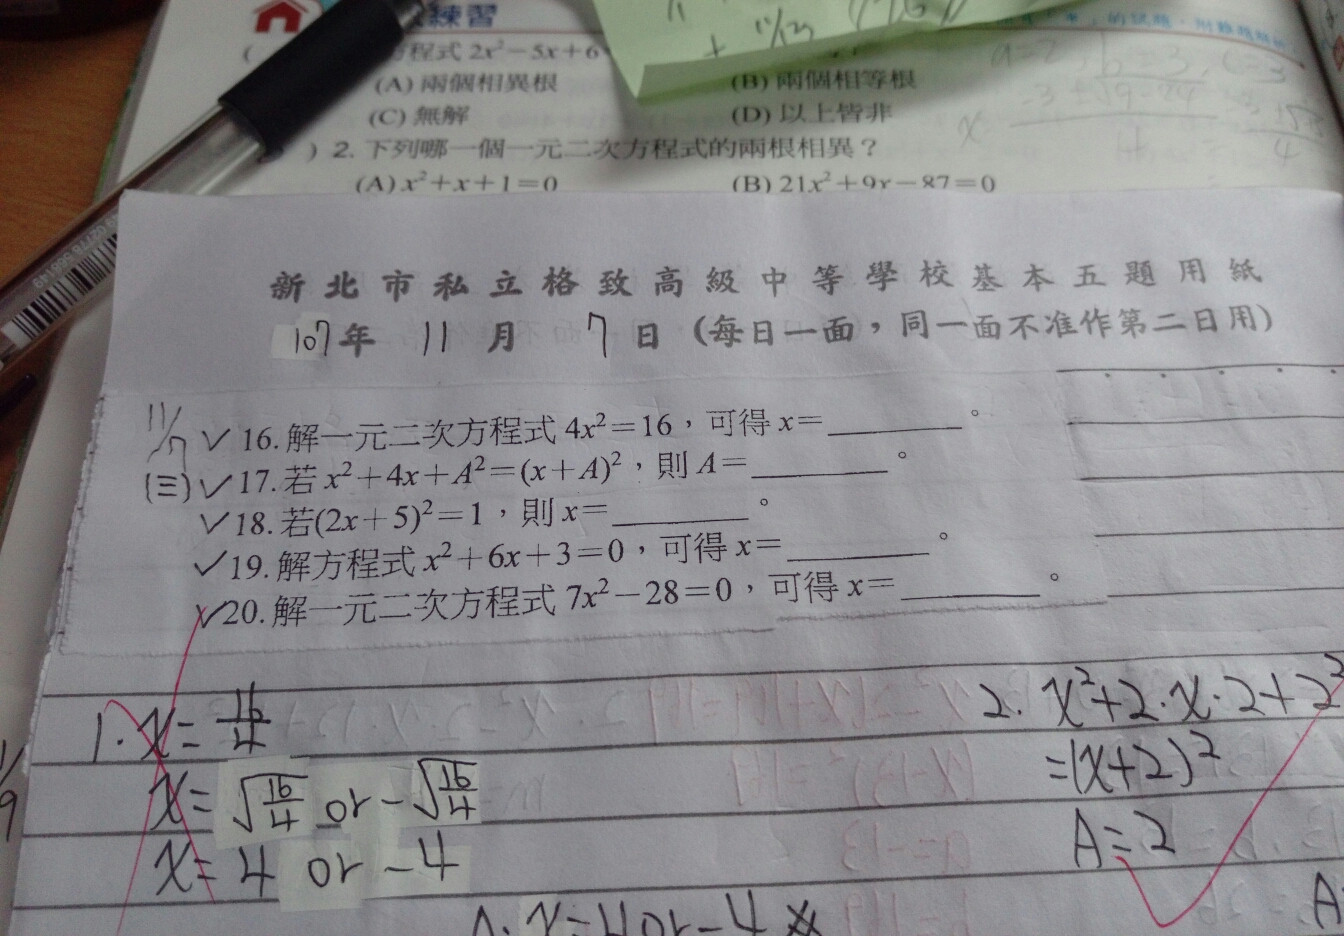 練習
方程式 2x²－5x＋6
(A) 兩個相異根 (B) 兩個相等根
(C) 無解 (D) 以上皆非
) 2. 下列哪一個一元二次方程式的兩根相異？
(A) x²＋x＋1＝0 (B) 21x²＋9x－87＝0
新北市私立格致高級中等學校基本五題用紙
107年 11月 7日（每日一面，同一面不准作第二日用）
11/7
(三)
✓16. 解一元二次方程式 4x²＝16，可得 x＝______。
✓17. 若 x²＋4x＋A²＝(x＋A)²，則 A＝______。
✓18. 若(2x＋5)²＝1，則 x＝______。
✓19. 解方程式 x²＋6x＋3＝0，可得 x＝______。
✓20. 解一元二次方程式 7x²－28＝0，可得 x＝______。
1. x= 16/4
x= √(16/4) or -√(16/4)
x= 4 or -4
A: x=4 or -4
2. x²+2·x·2+2²
=(x+2)²
A=2
A